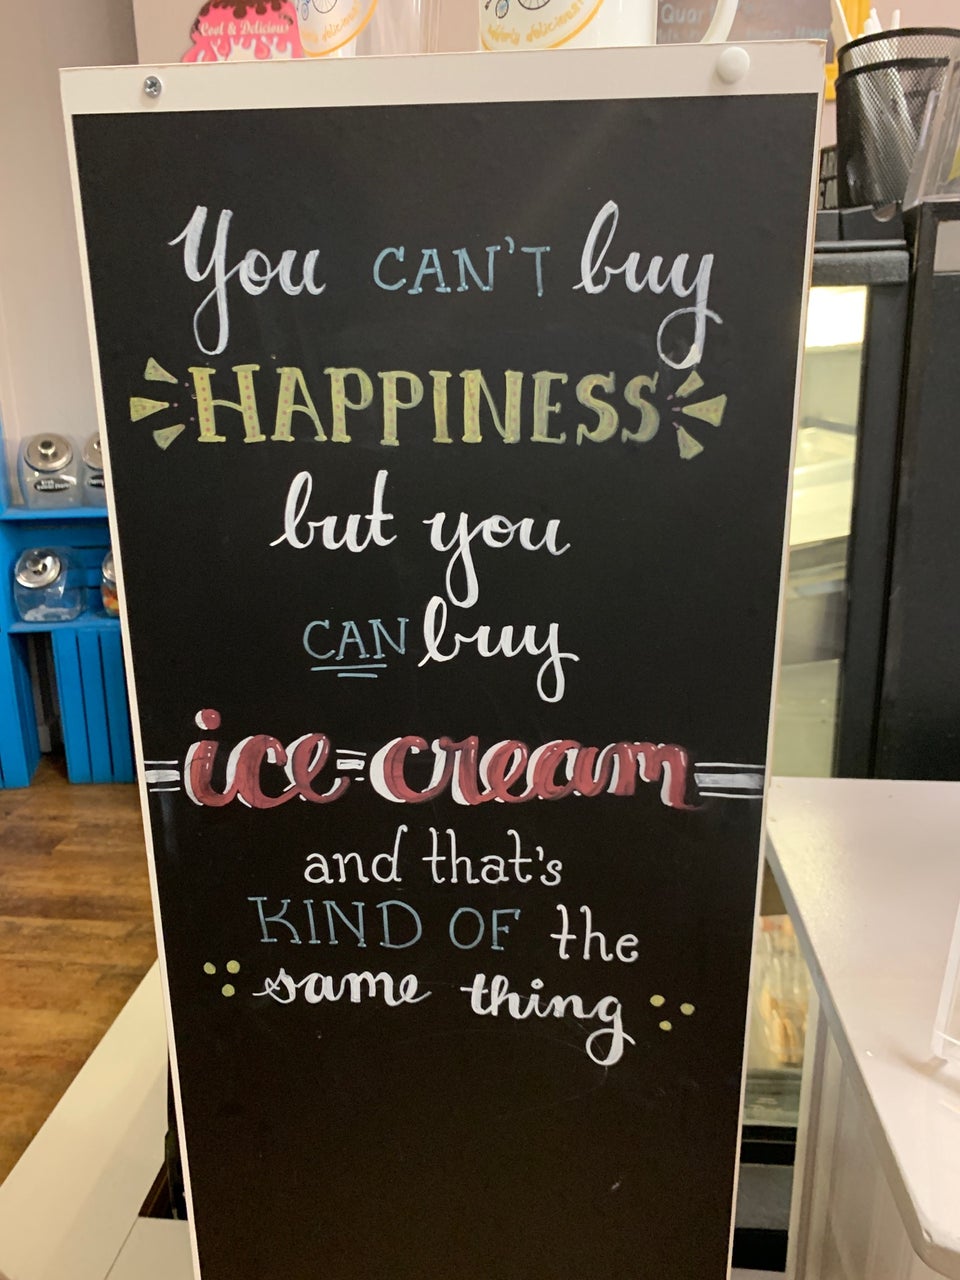 Cool & Delicious
You CAN'T buy
HAPPINESS
but you
CAN buy
ice cream
and that's
KIND OF the
same thing